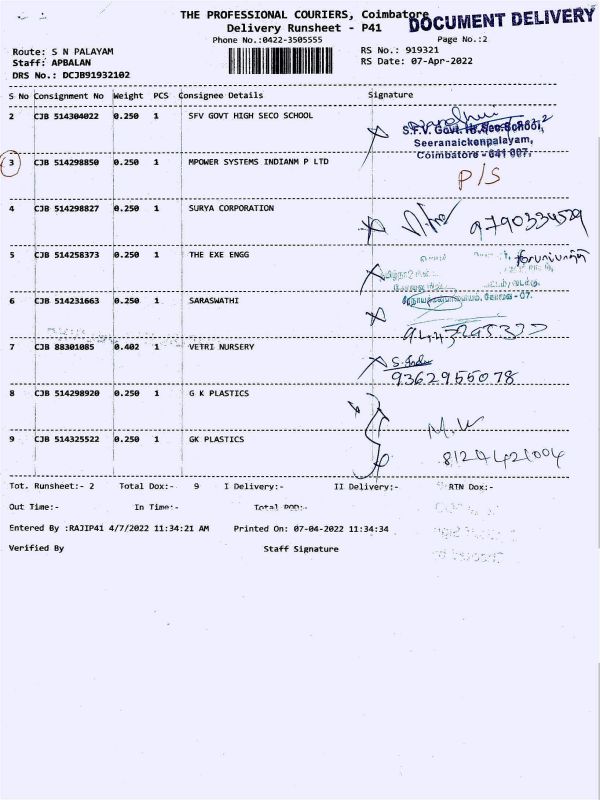 THE PROFESSIONAL COURIERS, Coimbatore
DOCUMENT DELIVERY
Delivery Runsheet - P41
Phone No.:0422-3505555
Page No.:2
Route: S N PALAYAM
RS No.: 919321
Staff: APBALAN
RS Date: 07-Apr-2022
DRS No.: DCJB91932102
S No Consignment No Weight PCS Consignee Details Signature
2 CJB 514304022 0.250 1 SFV GOVT HIGH SECO SCHOOL
S.F.V. Govt. Hr.Sec.School,
Seeranaickenpalayam,
Coimbatore - 641 007.
3 CJB 514298850 0.250 1 MPOWER SYSTEMS INDIANM P LTD
P/S
4 CJB 514298827 0.250 1 SURYA CORPORATION
9790334529
5 CJB 514258373 0.250 1 THE EXE ENGG
6 CJB 514231663 0.250 1 SARASWATHI
7 CJB 88301085 0.402 1 VETRI NURSERY
9362955078
8 CJB 514298920 0.250 1 G K PLASTICS
9 CJB 514325522 0.250 1 GK PLASTICS
8124421004
Tot. Runsheet:- 2 Total Dox:- 9 I Delivery:- II Delivery:- RTN Dox:-
Out Time:- In Time:- Total POD:-
Entered By :RAJIP41 4/7/2022 11:34:21 AM Printed On: 07-04-2022 11:34:34
Verified By Staff Signature